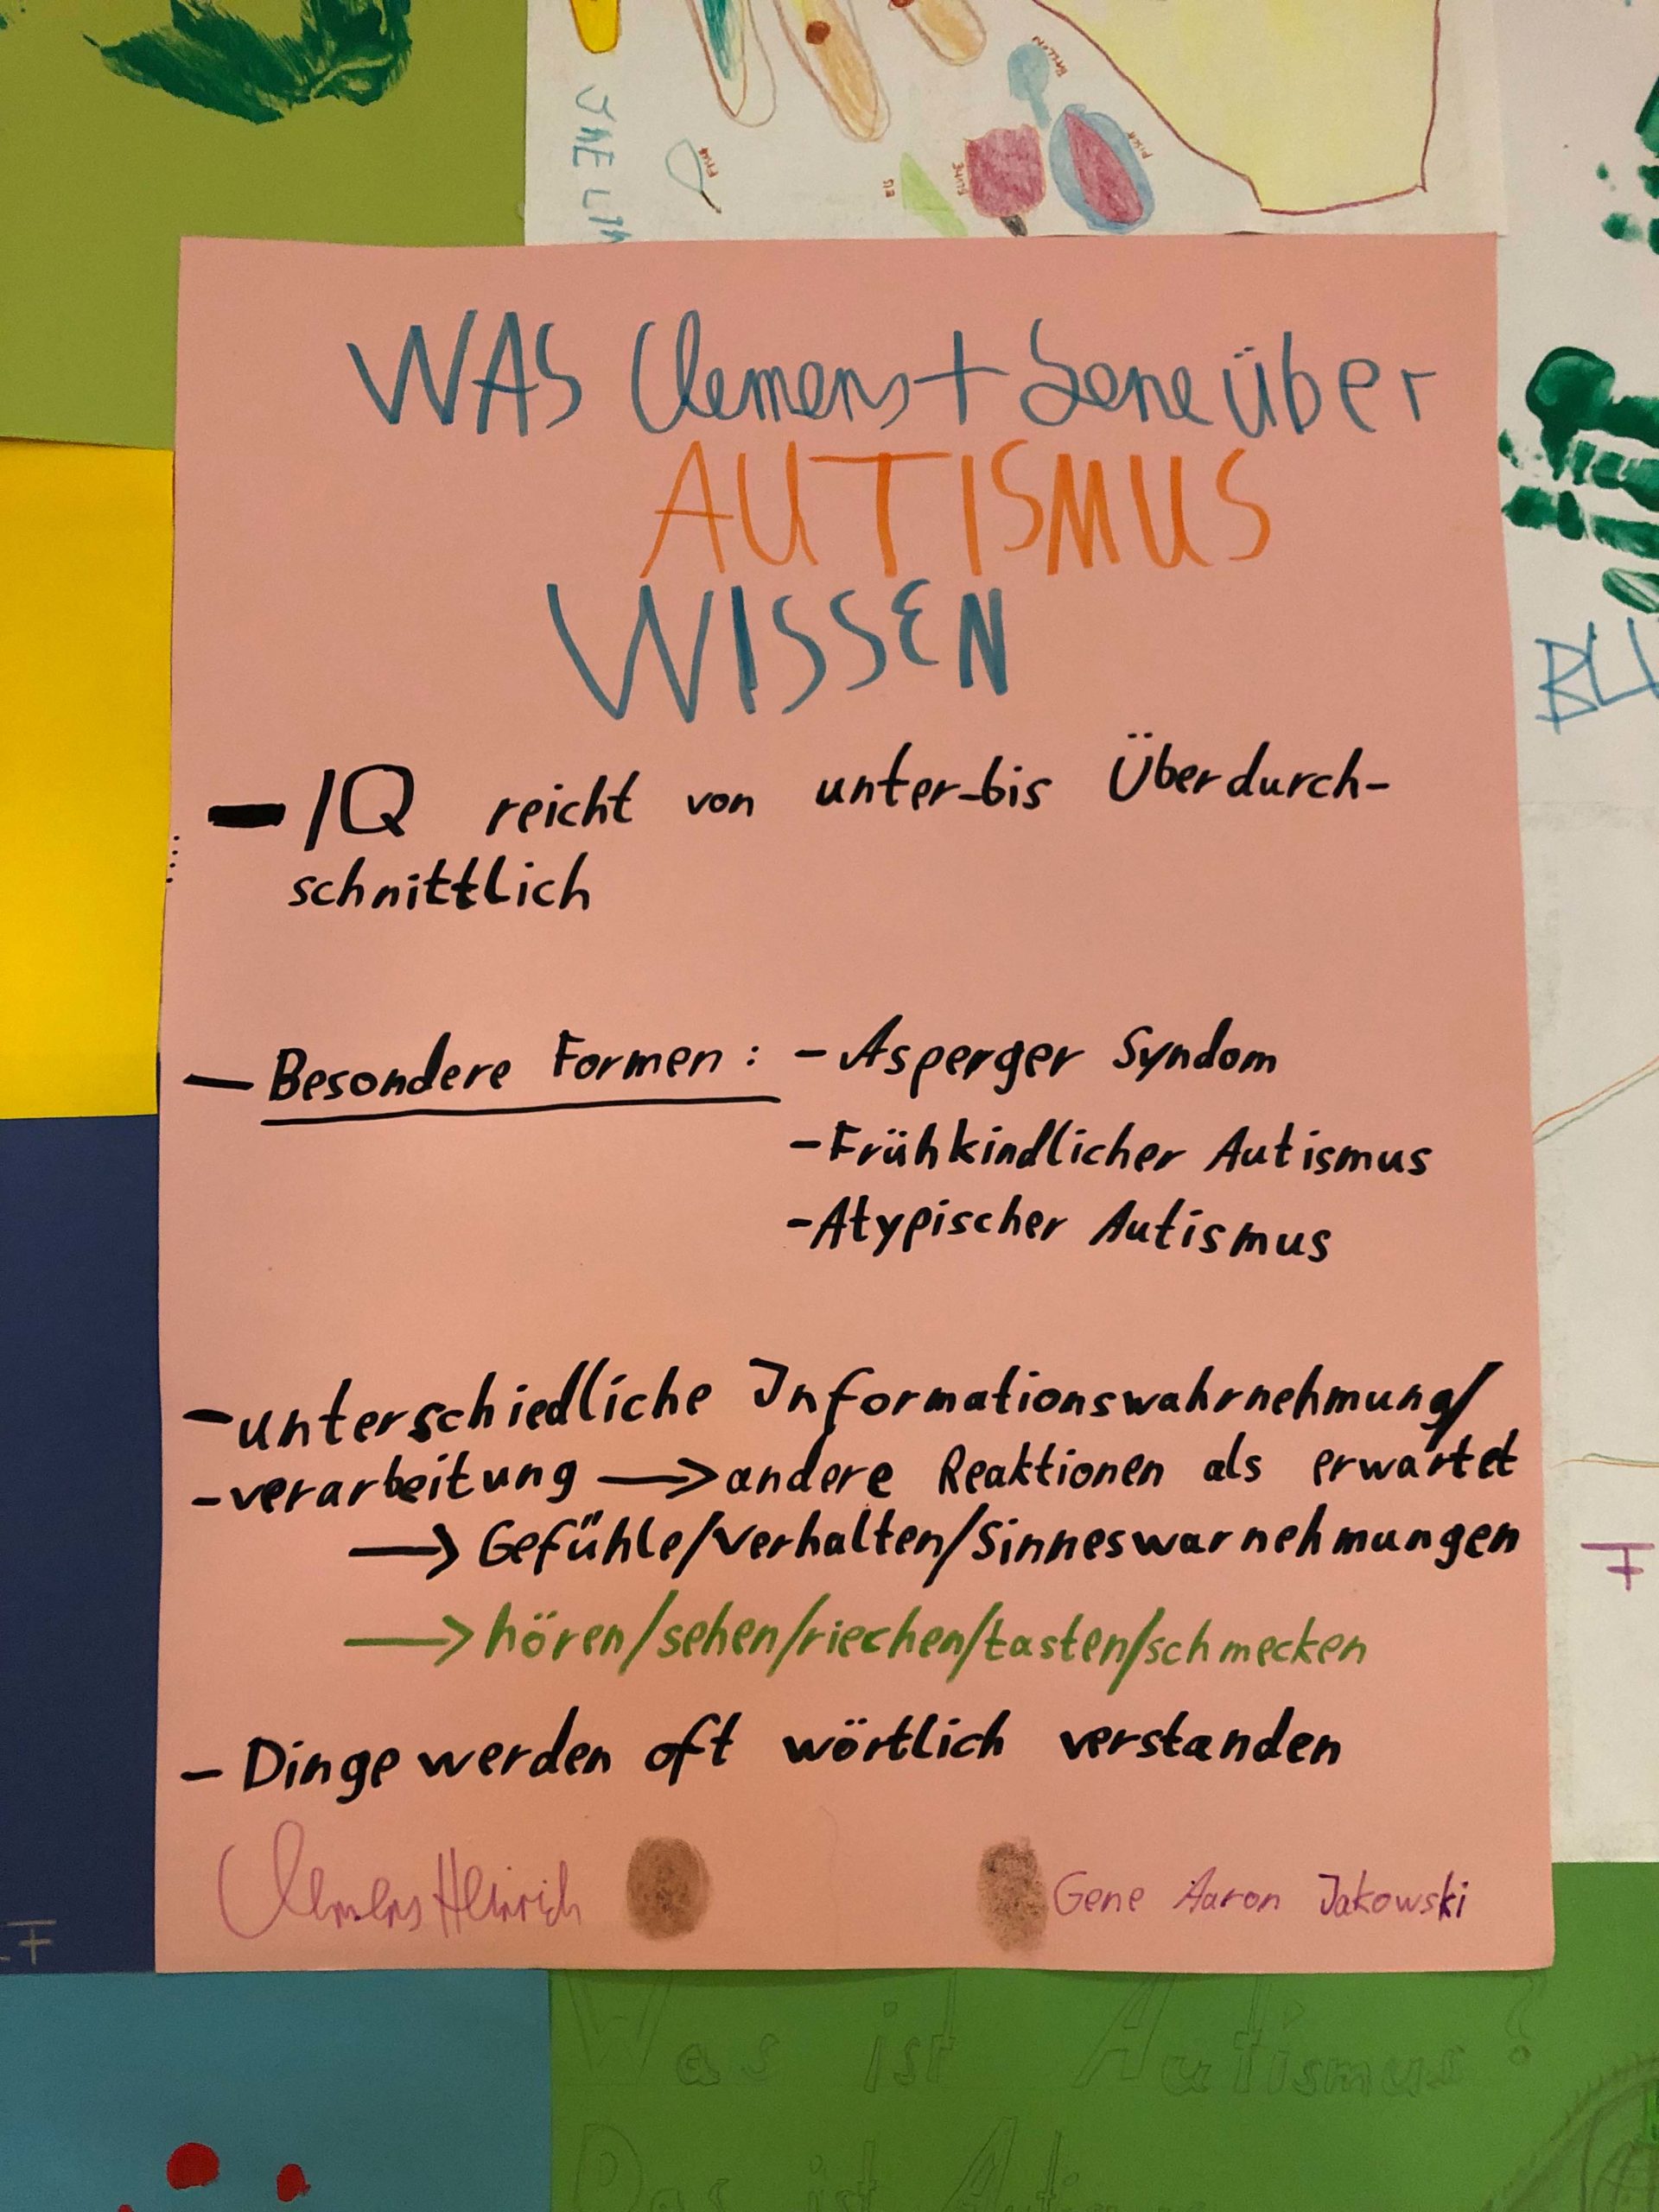 BALLON
FISCH
JNELIN
FISH
EIS
BLUME
WAS Clemens + Gene über
AUTISMUS
WISSEN
BLU
- IQ reicht von unter-bis Überdurch-
schnittlich
- Besondere Formen: - Asperger Syndom
- Frühkindlicher Autismus
- Atypischer Autismus
- unterschiedliche Informationswahrnehmung/
- verarbeitung → andere Reaktionen als erwartet
→ Gefühle/Verhalten/Sinneswarnehmungen
→ hören/sehen/riechen/tasten/schmecken
- Dinge werden oft wörtlich verstanden
Clemens Heinrich
Gene Aaron Jakowski
Was ist Autismus?
Das ist